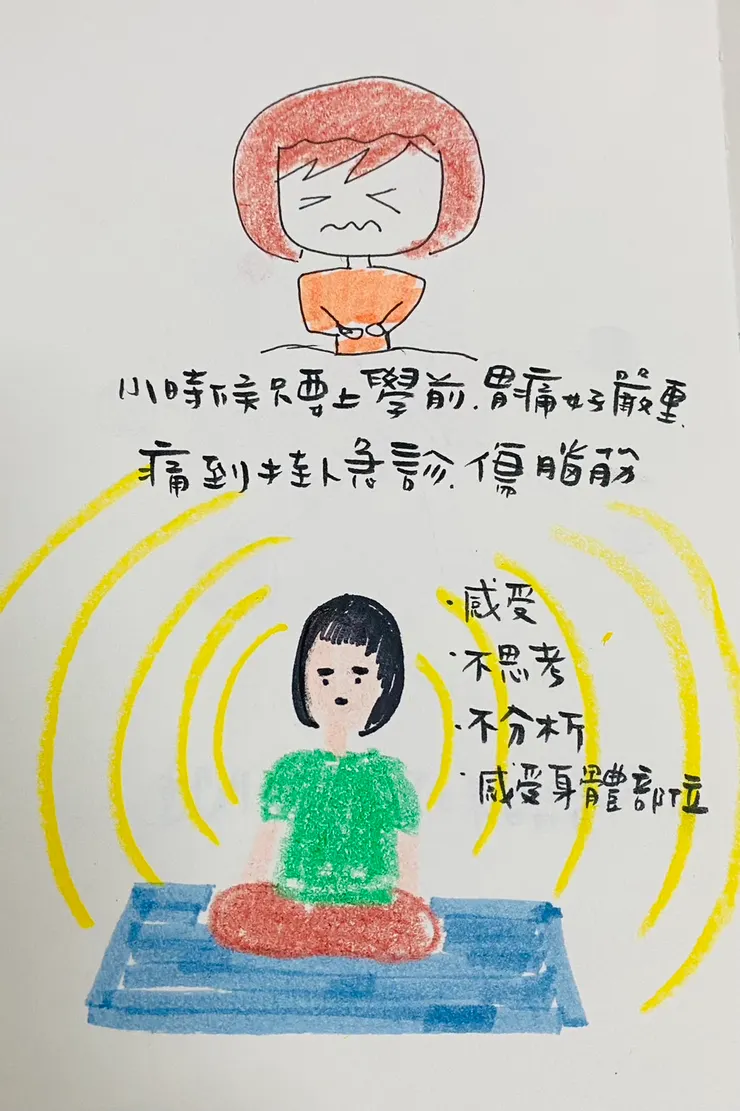 小時候只要上學前.胃痛好嚴重.
痛到掛急診.傷腦筋
·感受
·不思考
·不分析
·感受身體部位